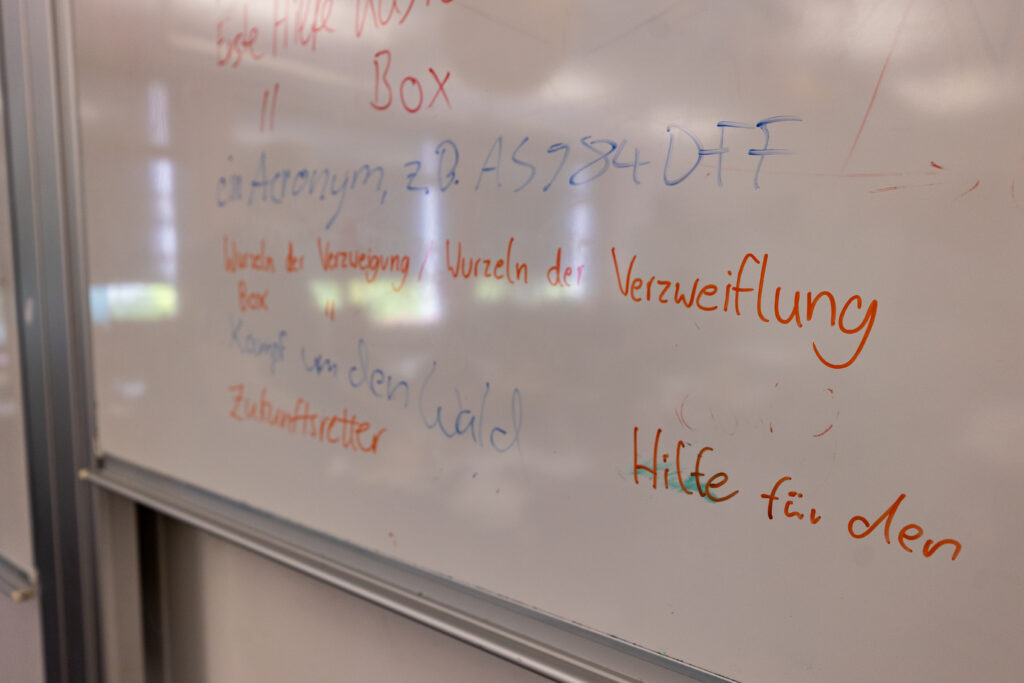 Erste Hilfe
" Box
ein Acronym, z.B. AS984DFF
Wurzeln der Verzweigung / Wurzeln der Verzweiflung
Box "
Kampf um den Wald
Zukunftsretter
Hilfe für den